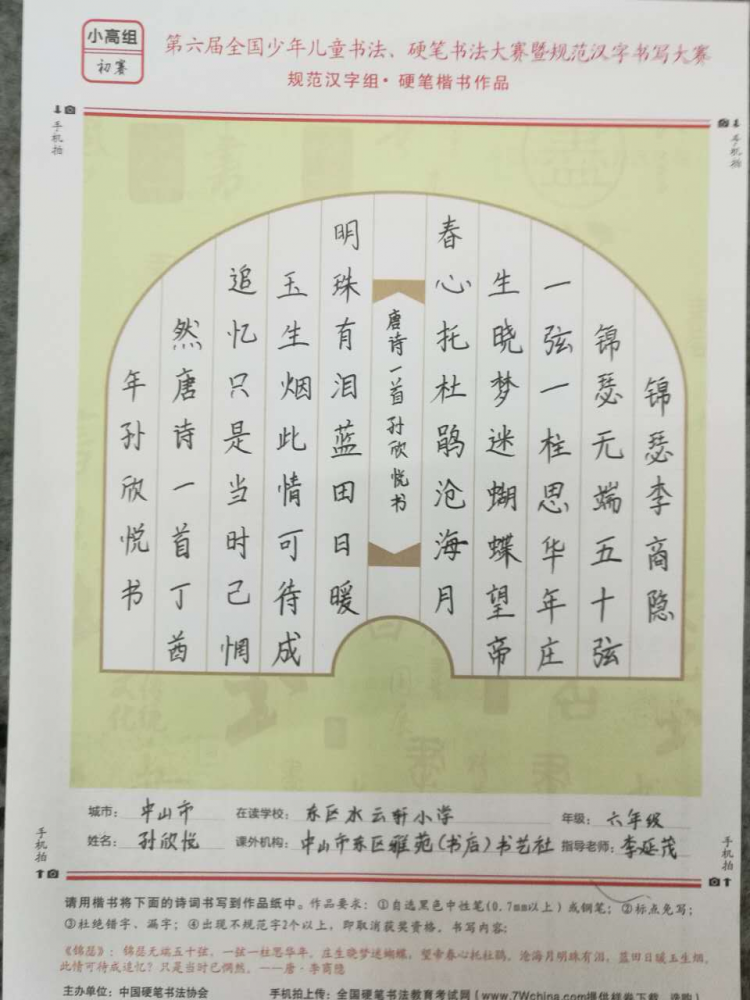 小高组
初赛
第六届全国少年儿童书法、硬笔书法大赛暨规范汉字书写大赛
规范汉字组·硬笔楷书作品
手机拍
手机拍
锦瑟李商隐
锦瑟无端五十弦
一弦一柱思华年庄
生晓梦迷蝴蝶望帝
春心托杜鹃沧海月
唐诗一首孙欣悦书
明珠有泪蓝田日暖
玉生烟此情可待成
追忆只是当时已惘
然唐诗一首丁酉
年孙欣悦书
城市：中山市 在读学校：东区水云轩小学 年级：六年级
姓名：孙欣悦 课外机构：中山市东区雅苑(书店)书艺社 指导老师：李延茂
手机拍
手机拍
请用楷书将下面的诗词书写到作品纸中。作品要求：①自选黑色中性笔(0.7mm以上)或钢笔；②标点免写；
③杜绝错字、漏字；④出现不规范字2个以上，即取消获奖资格。书写内容：
《锦瑟》：锦瑟无端五十弦，一弦一柱思华年。庄生晓梦迷蝴蝶，望帝春心托杜鹃。沧海月明珠有泪，蓝田日暖玉生烟。
此情可待成追忆？只是当时已惘然。——唐·李商隐
主办单位：中国硬笔书法协会 手机拍上传：全国硬笔书法教育考试网(www.7Wchina.com提供样卷下载、选购)